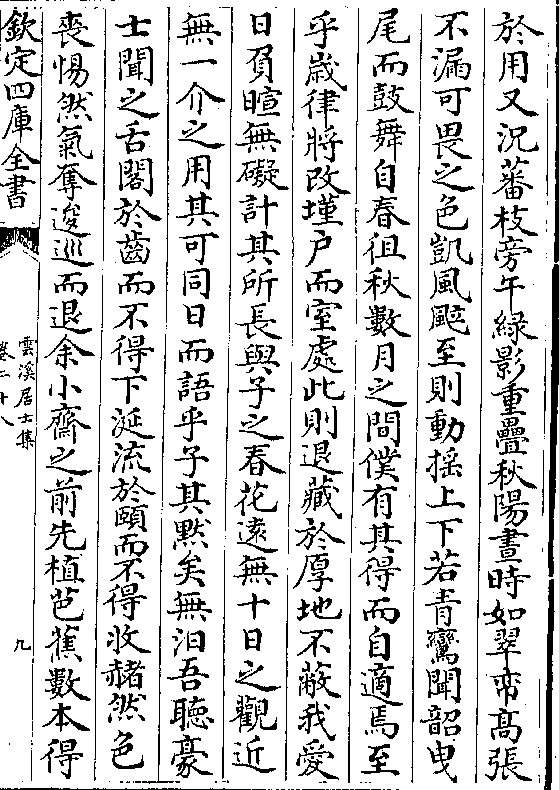 於用又況蕃枝旁午緑影重疊秋陽晝時如翠帟髙張
不漏可畏之色凱風颭至則動揺上下若青鸞聞韶曳
尾而鼓舞自春徂秋數月之間僕有其得而自適焉至
乎歳律將改墐户而室處此則退藏於厚地不蔽我愛
日負暄無礙計其所長與子之春花逺無十日之觀近
無一介之用其可同日而語乎子其黙矣無汨吾聴豪
士聞之舌閣於齒而不得下涎流於頤而不得收赭然色
喪惕然氣奪逡巡而退余小齋之前先植芭蕉數本得
欽定四庫全書
雲溪居士集
卷二十八
九